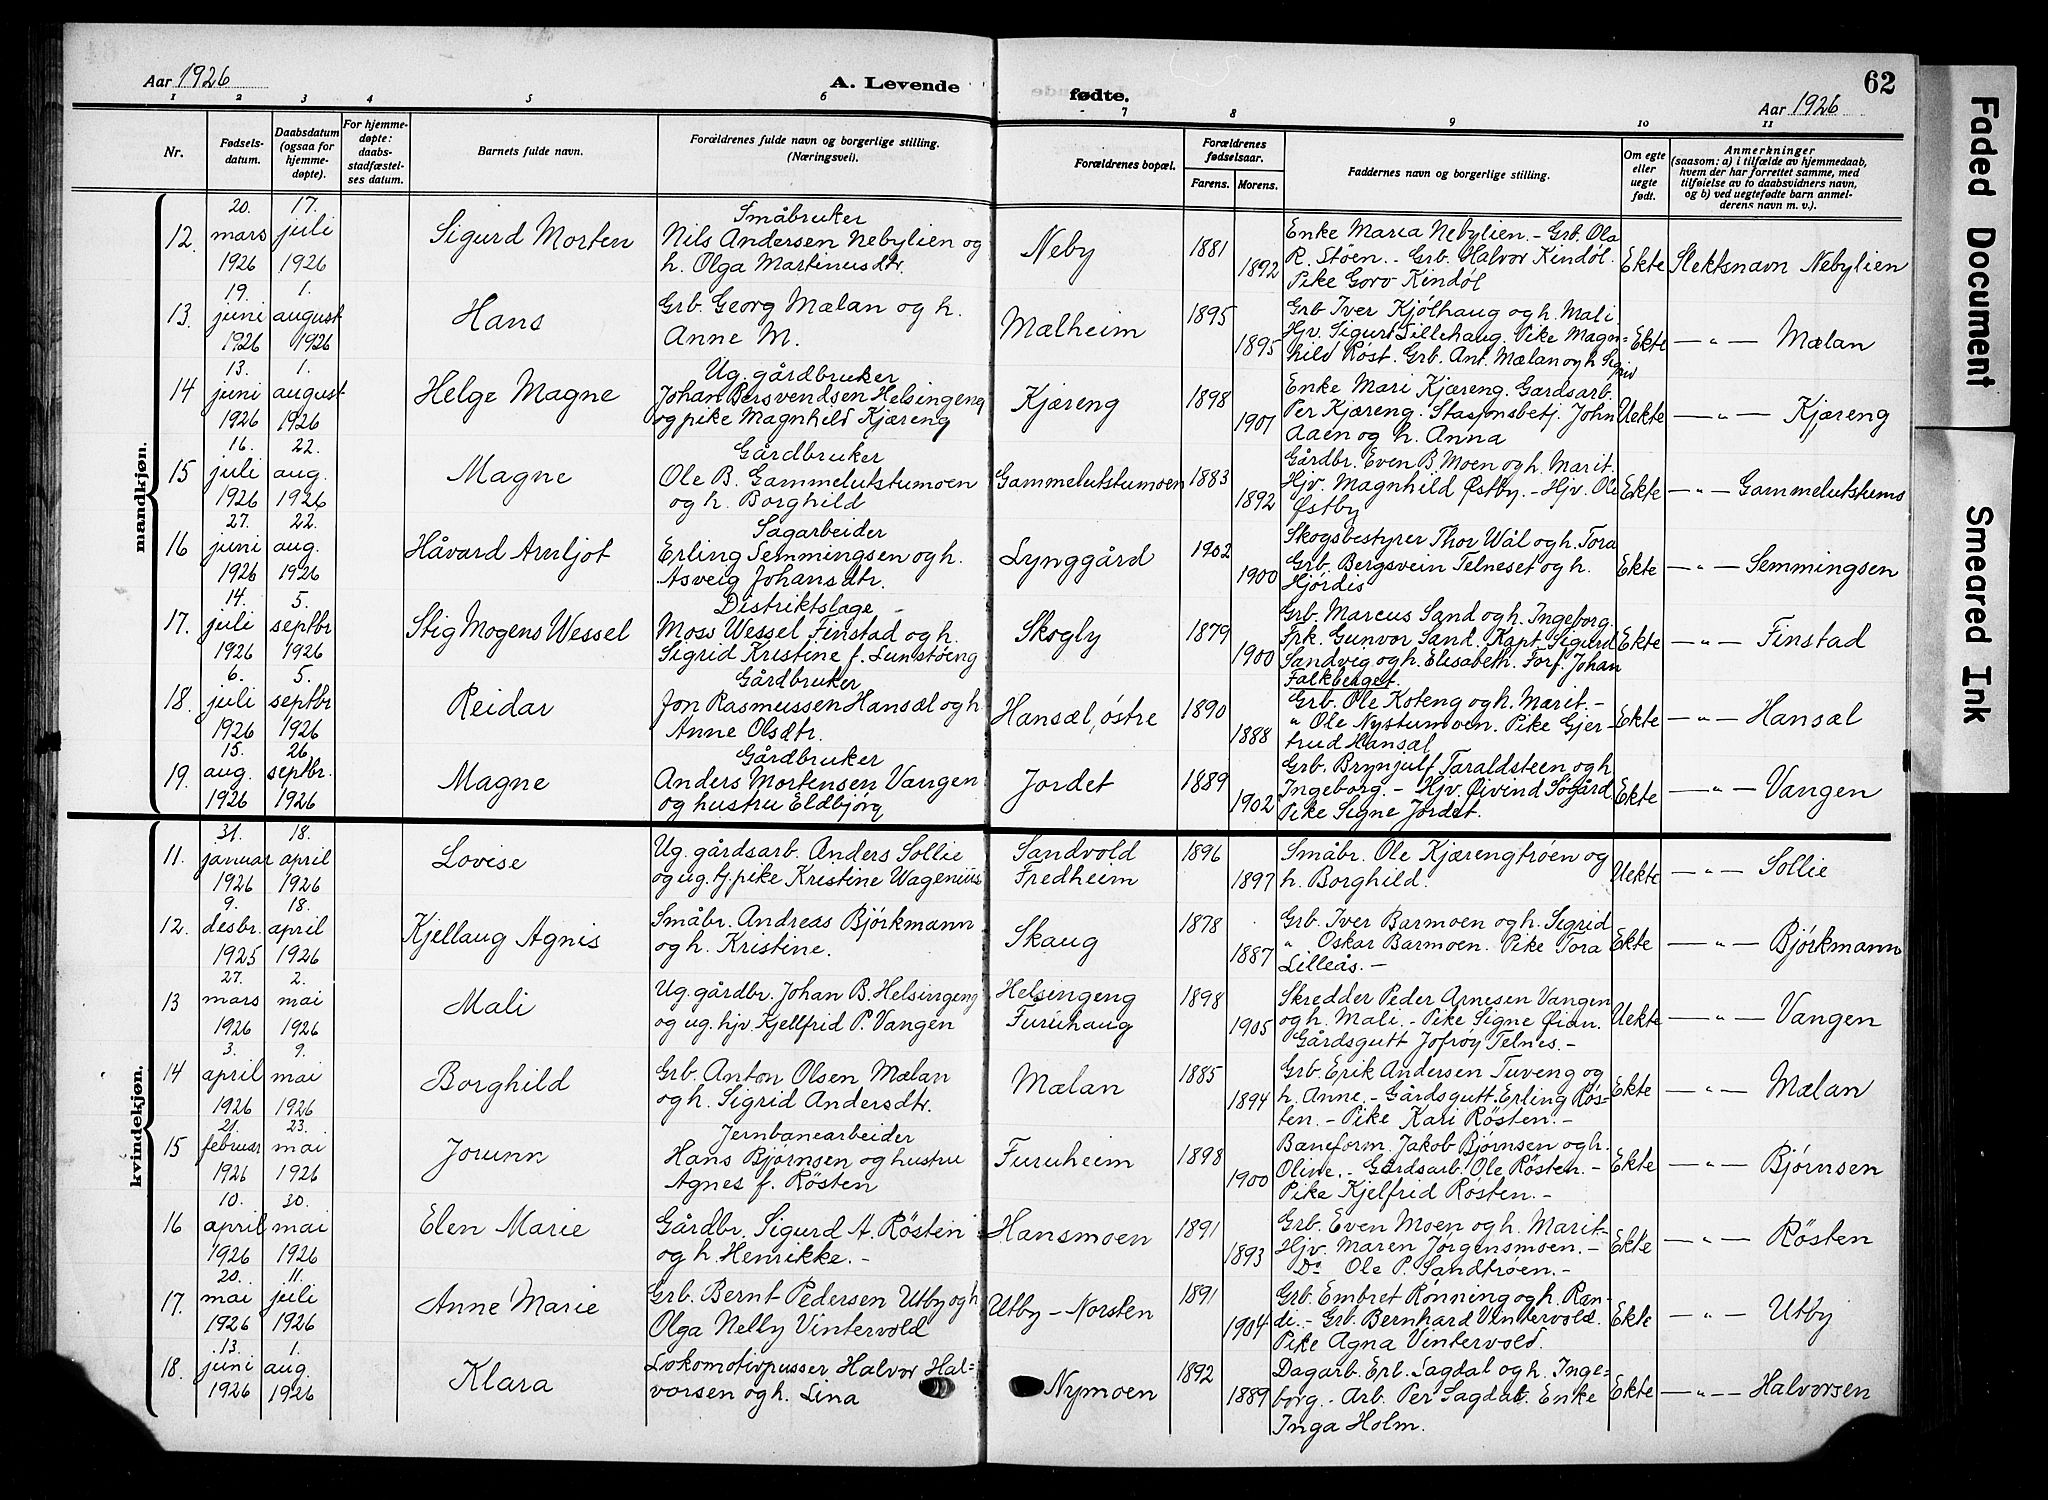 Aar 1926
A. Levende
fødte.
62
Aar 1926
1 2 3 4 5 6 7 8 9 10 11
Nr.
Fødsels-
datum.
Daabsdatum
(ogsaa for
hjemme-
døpte).
For hjemme-
døpte:
daabs-
stadfæstel-
ses datum.
Barnets fulde navn.
Forældrenes fulde navn og borgerlige stilling.
(Næringsvei).
Forældrenes bopæl.
Forældrenes
fødselsaar.
Farens. Morens.
Faddernes navn og borgerlige stilling.
Om egte
eller
uegte
født.
Anmerkninger
(saasom: a) i tilfælde av hjemmedaab,
hvem der har forrettet samme, med
tilføielse av to daabsvidners navn,
og b) ved uegtefødte barn anmel-
derens navn m. v.).
mandkjøn.
12.
20.
mars
1926
17.
juli
1926
Sigurd Morten
Småbruker
Nils Andersen Nebylien og
h. Olga Martinusdtr.
Neby
1881
1892
Enke Maria Nebylien. - Grb. Ola
R. Støen. - Grb. Halvor Kindøl.
Pike Goro Kindøl
Ekte
Slektsnavn Nebylien
13.
19.
juni
1926
1.
august
1926
Hans
Grb. Georg Mælan og h.
Anne M.
Mælheim
1895
1895
Grb. Iver Kjølhaug og h. Mali
Hjv. Sigurt Lillehaug. Pike Magn-
hild Røst. Grb. Ant. Mælan og h. Sigrid
Ekte
— " — Mælan
14
13.
juni
1926
1.
august
1926
Helge Magne
Ug. gårdbruker
Johan Bersvendsen Helsingeng
og pike Magnhild Kjæreng
Kjæreng
1898
1901
Enke Mari Kjæreng. Gardsarb.
Per Kjæreng. Stasjonsbetj. John
Aaen og h. Anna
Uekte
— " — Kjæreng
15
16.
juli
1926
22.
aug.
1926
Magne
Gårdbruker
Ole B. Gammelutstumoen
og h. Borghild
Gammelutstumoen
1883
1892
Gårdbr. Even B. Moen og h. Marit.
Hjv. Magnhild Østby. - Hjv. Ole
Østby
Ekte
— " — Gammelutstumo
16
27.
juni
1926
22.
aug.
1926
Håvard Arnljot
Sagarbeider
Erling Semmingsen og h.
Asveig Johansdtr.
Lynggård
1902
1900
Skogsbestyrer Thor Wål og h. Tora
Grb. Bergsvein Telneset og h.
Hjørdis
Ekte
— " — Semmingsen
17.
14.
juli
1926
5.
septbr
1926
Stig Mogens Wessel
Distriktslæge -
Moss Wessel Finstad og h.
Sigrid Kristine f. Lunstøeng
Skogly
1879
1900
Grb. Marcus Sand og h. Ingeborg.
Frk. Gunvor Sand. Kapt. Sigurd
Sandvig og h. Elisabeth. Forf. Johan
Falkberget.
Ekte
— " — Finstad
18.
6.
juli
1926
5.
septbr
1926
Reidar
Gårdbruker
Jon Rasmussen Hansæl og h
Anne Olsdtr.
Hansæl, østre
1890
1888
Grb. Ole Koteng og h. Marit. -
" Ole Nystumoen. Pike Gjer-
trud Hansæl
Ekte
— " — Hansæl
19.
15.
aug.
1926
26
septbr.
1926
Magne
Gårdbruker
Anders Mortensen Vangen
og hustru Eldbjørg
Jordet
1889
1902
Grb. Brynjulf Taraldsteen og h
Ingeborg. - Hjv. Øivind Søgård
Pike Signe Jordet.
Ekte
— " — Vangen
kvindekjøn.
11.
31.
januar
1926
18.
april
1926
Lovise
Ug. gårdsarb. Anders Sollie
og ug. tj. pike Kristine Wagenius
Sandvold
Fredheim
1896
1897
Småbr. Ole Kjærengtrøen og
h. Borghild.
Uekte
— " — Sollie
12.
9.
desbr.
1925
18.
april
1926
Kjellaug Agnis
Småbr. Andreas Bjørkmann
og h. Kristine.
Skaug
1878
1887
Grb. Iver Barmoen og h. Sigrid
" Oskar Barmoen. Pike Tora
Lilleås. -
Ekte
— " — Bjørkmann
13
27.
mars
1926
2.
mai
1926
Mali
Ug. gårdbr. Johan B. Helsingeng
og ug. hjv. Kjellfrid P. Vangen
Helsingeng
Furuhaug
1898
1905
Skredder Peder Arnesen Vangen
og h. Mali. - Pike Signe Øian.
Gårdsgutt Jofrøy Telnes. -
Uekte
— " — Vangen
14
3.
april
1926
9.
mai
1926
Borghild
Grb. Anton Olsen Mælan
og h. Sigrid Andersdtr.
Mælan
1885
1894
Grb. Erik Andersen Tuveng og
h. Anne. - Gårdsgutt. Erling Røs-
ten. - Pike Kari Røsten. -
Ekte
— " — Mælan
15
21.
februar
1926
23.
mai
1926
Jorunn
Jernbanearbeider
Hans Bjørnsen og hustru
Agnes f. Røsten
Furuheim
1898
1900
Baneform. Jakob Bjørnsen og h.
Oline. - Gårdsarb. Ole Røsten. -
Pike Kjelfrid Røsten. -
Ekte
— " — Bjørnsen
16
10.
april
1926
30.
mai
1926
Elen Marie
Gårdbr. Sigurd A. Røsten
og h. Henrikke. -
Hansmoen
1891
1893
Grb. Even Moen og h. Marit.-
Hjv. Maren Jørgensmoen. -
Do Ole P. Sandtrøen. -
Ekte
— " — Røsten
17.
20.
mai
1926
11.
juli
1926
Anne Marie
Grb. Bernt Pedersen Utby og h
Olga Nelly Vintervold
Utby - Norsten
1891
1904
Grb. Embret Rønning og h. Ran-
di. - Grb. Bernhard Vintervold.
Pike Agna Vintervold.
Ekte
— " — Utby
18.
13.
juni
1926
1.
aug.
1926
Klara
Lokomotivpusser Halvor Hal-
vorsen og h. Lina
Nymoen
1892
1889
Dagarb. Erl. Sagdal og h. Inge-
borg. - Arb. Per Sagdal. Enke
Inga Holm.
Ekte
— " — Halvorsen
Faded Document
Smeared Ink